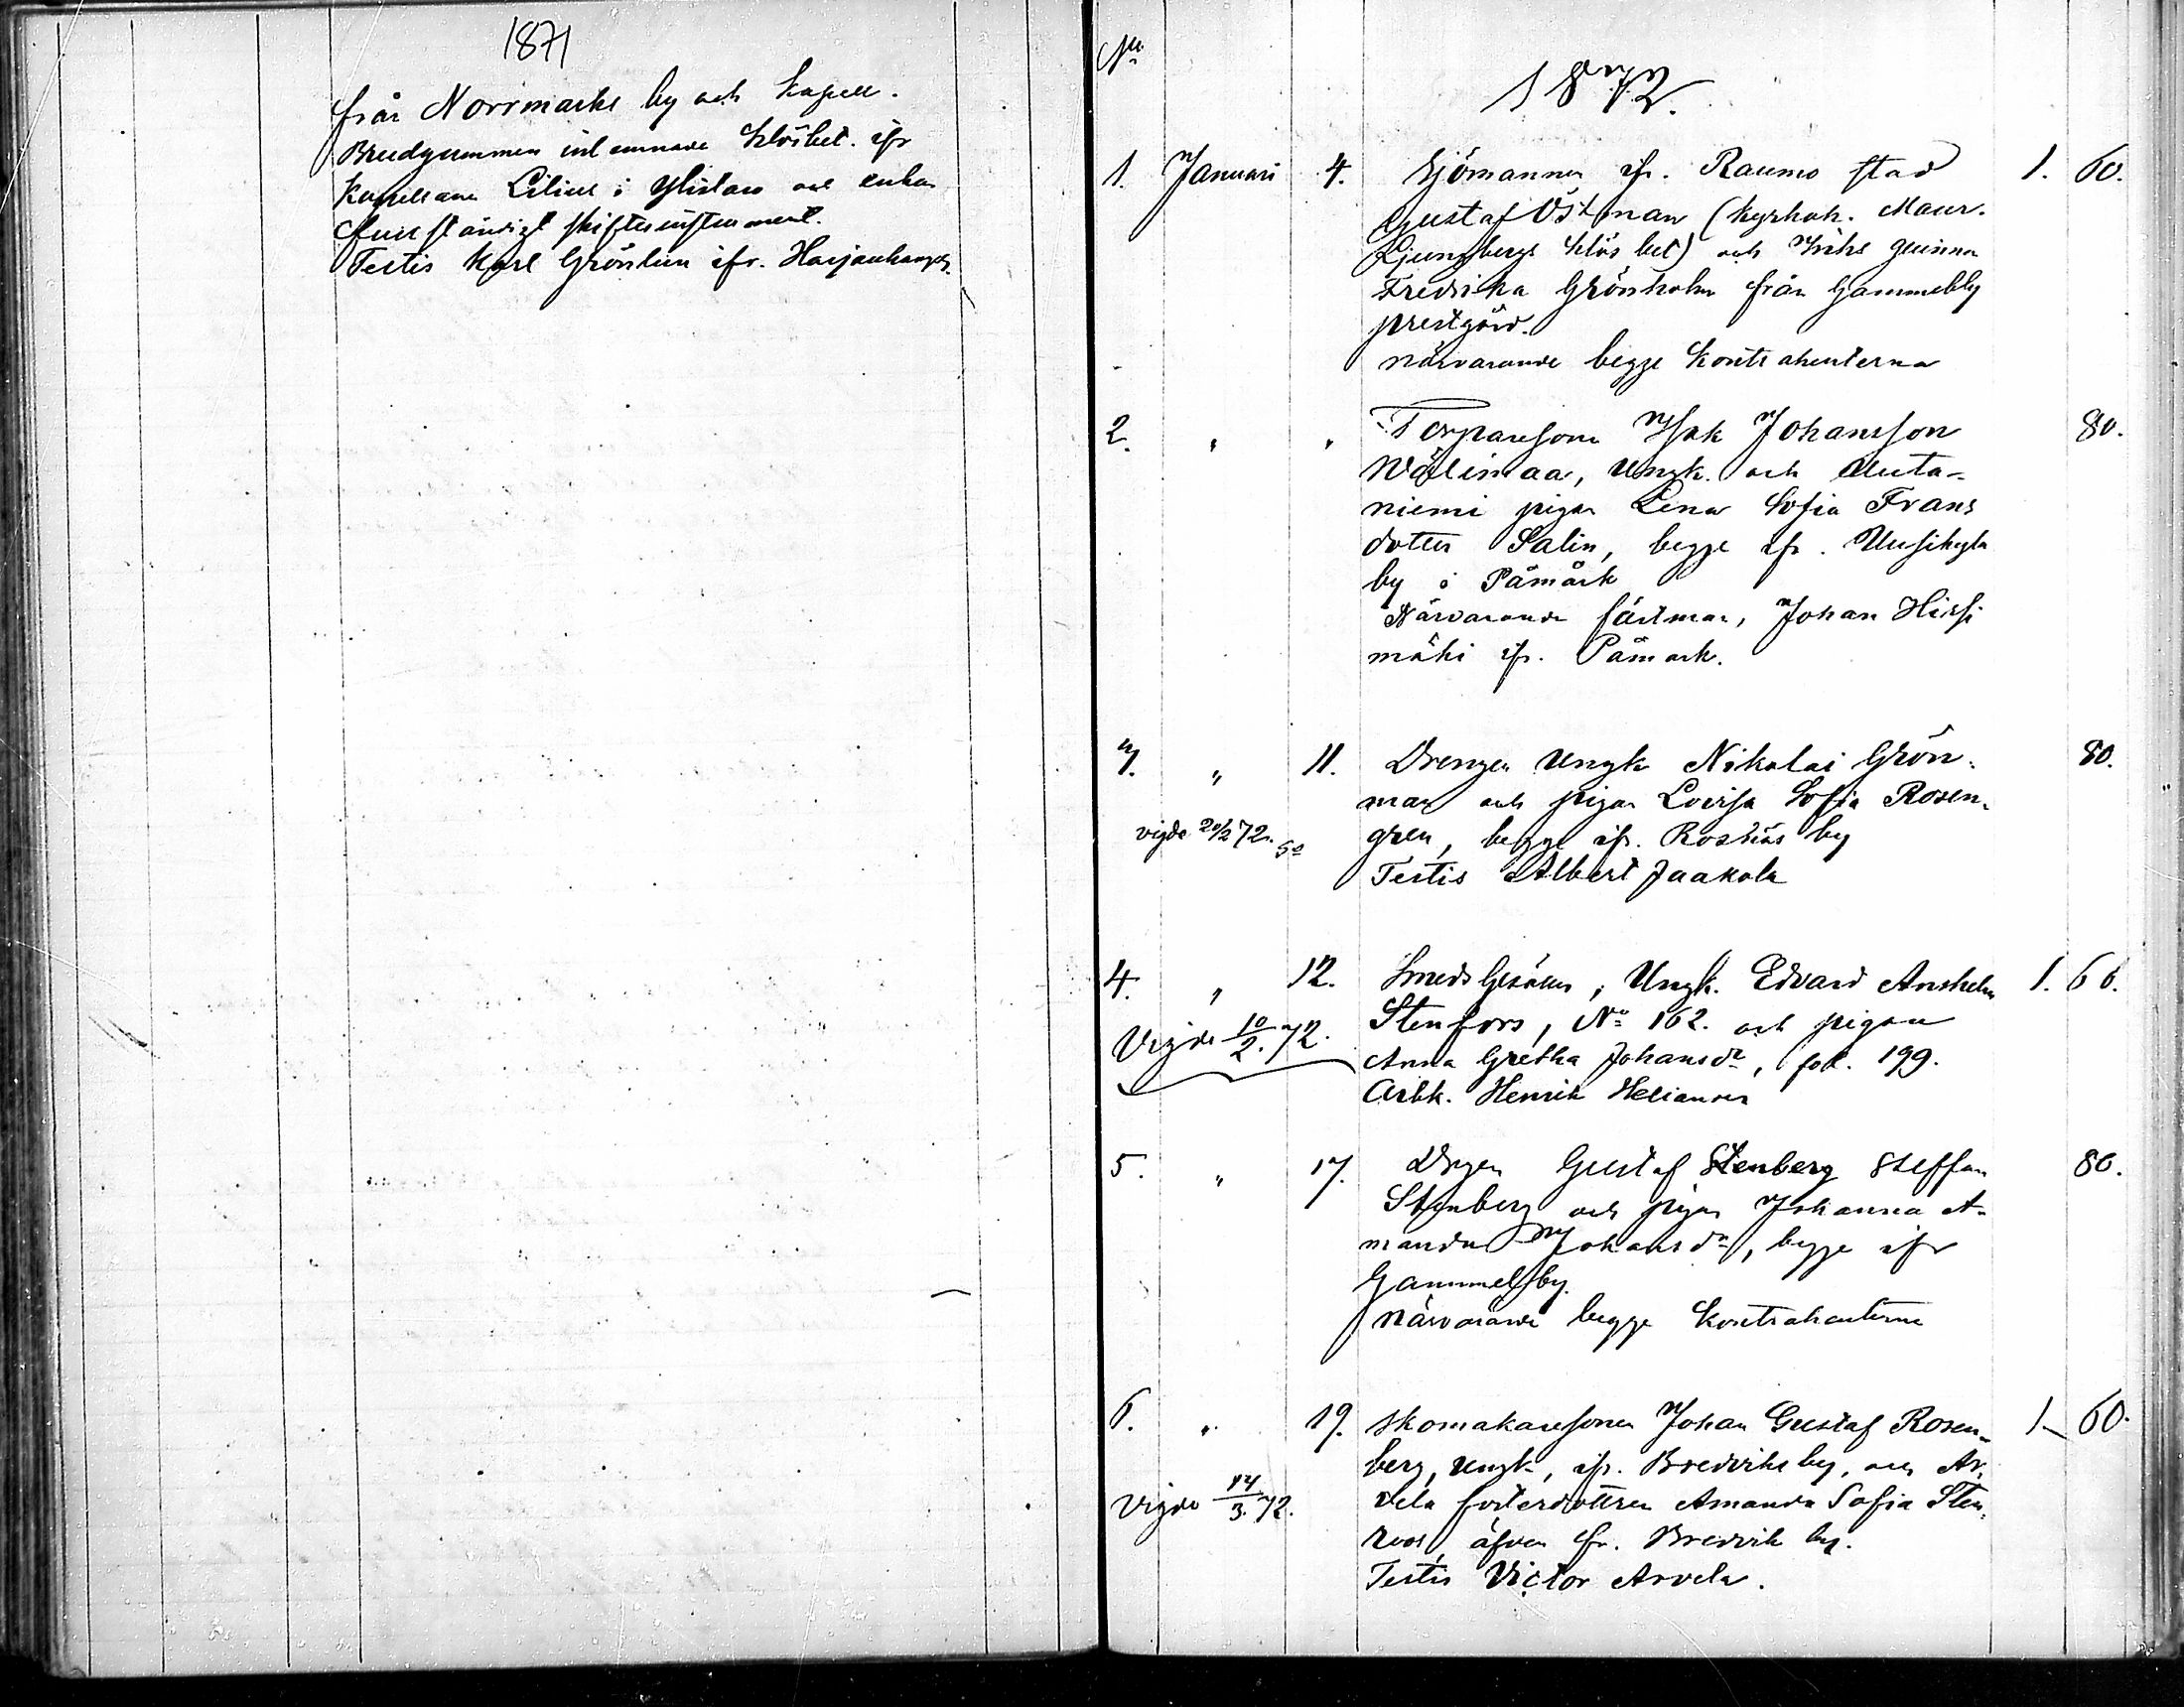 1871
från Norrmarks by och Kapell.
Brudgummen inlemnade klöfbet. ifr
Kapellanen Lilius i Ylistaro och enkan
skiftesinstrument.
Testis Karl Grönlun ifr. Harjankangas
No
1872.
1. Januari 4. Sjömannen ifr. Raumo stad 1. 60.
Gustaf Östman (kyrkoh. Maur.
Ljungbergs bet) och qvinnan
Fredrika Grönholm från Gammelby
prestgård.
närvarande begge Kontrahenterna
2. " " Torparesonen Isak Johansson 80.
Wälimaa, Ungk. och Auta-
niemi pigan Lena Sofia Frans
dotter Salin, begge ifr. Uusikyla
by i Påmark
Närvarande fästman, Johan Hirsi
mäki ifr. Påmark.
3. " 11. Drengen Ungk Nikolai Grön- 80.
man och pigan Lovisa Sofia Rosen-
vigde 20/2 72. gren, begge ifr. Rosnäs by
Testis Albert Jaakola
4. " 12. Smeds Gesällen, Ungk. Edvard Anshelm 1. 60.
Stenfors, No 162. och pigan
Vigde 10/2. 72. Anna Gretha Johansdr, fol. 199.
Arbk. Henrik Heliander
5. " 17. Drgen Gustaf Stenberg Steffan 80.
Stenberg och pigan Johanna A-
manda Johansdr, begge ifr
Gammelby.
närvarande begge Kontrahenterne
6. " 19. Skomakaresonen Johan Gustaf Rosen- 1. 60.
berg, Ungk, ifr. Bredviks by, och Ar-
vigde 14/3. 72. vela fosterdottren Amanda Sofia Sten-
roos, äfven ifr. Bredvik by.
Testis Victor Arvela.